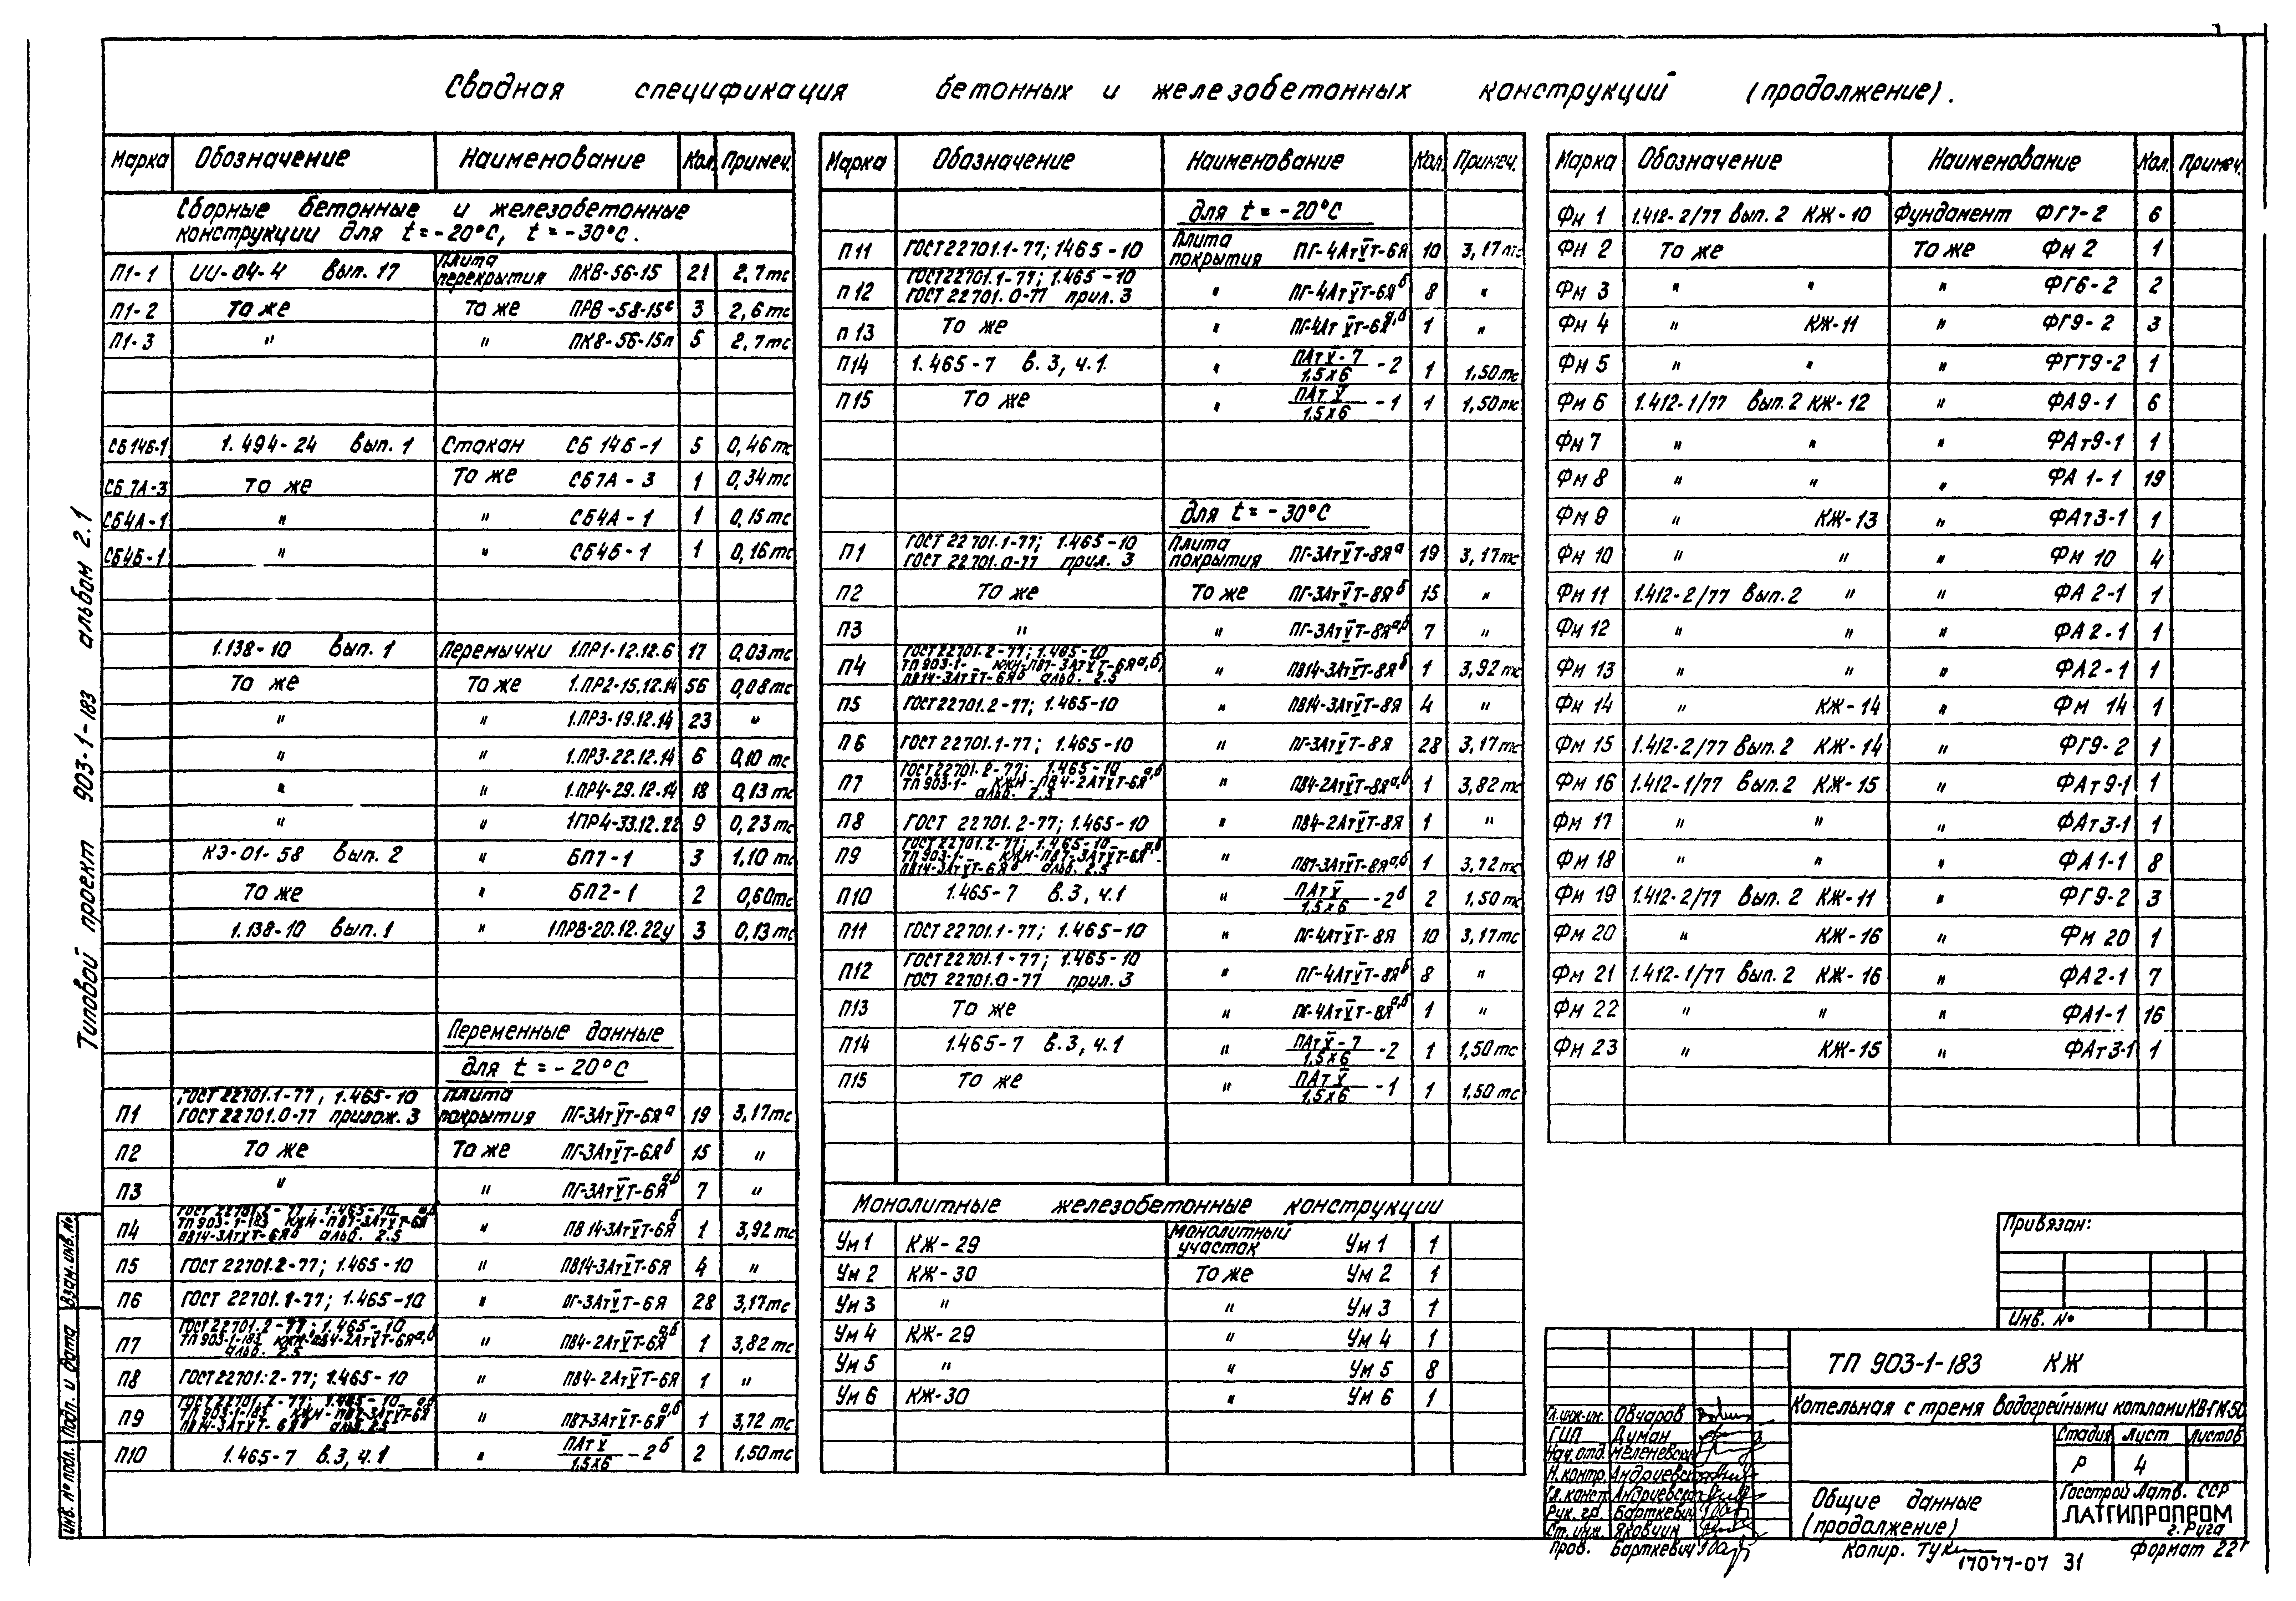 Сводная спецификация бетонных и железобетонных конструкций (продолжение).
Марка Обозначение Наименование Кол. Примеч.
Сборные бетонные и железобетонные
конструкции для t = -20°С, t = -30°С.
П1-1 ИИ-04-4 Вып. 17 Плита перекрытия ПК8-56-15 21 2,7тс
П1-2 То же То же ПРВ-58-15с 3 2,6тс
П1-3 " " ПК8-56-15п 5 2,7тс
СБ14Б-1 1.494-24 Вып. 1 Стакан СБ 14Б-1 5 0,46тс
СБ7А-3 То же То же СБ7А-3 1 0,34тс
СБ4А-1 " " СБ4А-1 1 0,15тс
СБ4Б-1 " " СБ4Б-1 1 0,16тс
1.138-10 Вып. 1 Перемычки 1.ПР1-12.12.6 17 0,03тс
То же То же 1.ПР2-15.12.14 56 0,08тс
" " 1.ПР3-19.12.14 23 "
" " 1.ПР3-22.12.14 6 0,10 тс
" " 1.ПР4-29.12.14 18 0,13тс
" " 1ПР4-33.12.22 9 0,23тс
КЭ-01-58 Вып. 2 " БП7-1 3 1,10тс
То же " БП2-1 2 0,60тс
1.138-10 Вып. 1 " 1ПР8-20.12.22у 3 0,13тс
Переменные данные
для t = -20°С
П1 ГОСТ 22701.1-77; 1.465-10 ГОСТ 22701.0-77 прилож. 3 Плита покрытия ПГ-3АтⅤТ-6Яа 19 3,17тс
П2 То же То же ПГ-3АтⅤТ-6Яб 15 "
П3 " " ПГ-3АтⅤТ-6Яа,б 7 "
П4 ГОСТ 22701.2-77; 1.465-10 ТП 903-1-183 КЖИ-ПВ7-3АтⅤТ-6Яа,б ПВ14-3АтⅤТ-6Яб альб. 2.5 " ПВ14-3АтⅤТ-6Яб 1 3,92тс
П5 ГОСТ 22701.2-77; 1.465-10 " ПВ14-3АтⅤТ-6Я 4 "
П6 ГОСТ 22701.1-77; 1.465-10 " ПГ-3АтⅤТ-6Я 28 3,17тс
П7 ГОСТ 22701.2-77; 1.465-10 ТП 903-1-183 КЖИ-ПВ4-2АтⅤТ-6Яа,б альб. 2.5 " ПВ4-2АтⅤТ-6Яа,б 1 3,82тс
П8 ГОСТ 22701.2-77; 1.465-10 " ПВ4-2АтⅤТ-6Я 1 "
П9 ГОСТ 22701.2-77; 1.465-10 ТП 903-1-183 КЖИ-ПВ7-3АтⅤТ-6Яа,б ПВ14-3АтⅤТ-6Яб альб. 2.5 " ПВ7-3АтⅤТ-6Яа,б 1 3,72 тс
П10 1.465-7 в.3, ч.1 " ПАтⅤ/1,5х6-2б 2 1,50тс
Марка Обозначение Наименование Кол. Примеч.
для t = -20°С
П11 ГОСТ 22701.1-77; 1465-10 Плита покрытия ПГ-4АтⅤТ-6Я 10 3,17тс
П12 ГОСТ 22701.1-77; 1.465-10 ГОСТ 22701.0-77 прил. 3 " ПГ-4АтⅤТ-6Яб 8 "
П13 То же " ПГ-4АтⅤТ-6Яа,б 1 "
П14 1.465-7 в.3, ч.1. " ПАтⅤ-7/1,5х6-2 1 1,50тс
П15 То же " ПАтⅤ/1,5х6-1 1 1,50тс
для t = -30°С
П1 ГОСТ 22701.1-77; 1.465-10 ГОСТ 22701.0-77 прил. 3 Плита покрытия ПГ-3АтⅤТ-8Яа 19 3,17тс
П2 То же То же ПГ-3АтⅤТ-8Яб 15 "
П3 " " ПГ-3АтⅤТ-8Яа,б 7 "
П4 ГОСТ 22701.2-77; 1.465-10 ТП 903-1- КЖИ-ПВ7-3АтⅤТ-6Яа,б ПВ14-3АтⅤТ-6Яб альб. 2.5 " ПВ14-3АтⅤТ-8Яб 1 3,92тс
П5 ГОСТ 22701.2-77; 1.465-10 " ПВ14-3АтⅤТ-8Я 4 "
П6 ГОСТ 22701.1-77; 1.465-10 " ПГ-3АтⅤТ-8Я 28 3,17тс
П7 ГОСТ 22701.2-77; 1.465-10 ТП 903-1- КЖИ-ПВ4-2АтⅤТ-6Яа,б альб. 2.5 " ПВ4-2АтⅤТ-8Яа,б 1 3,82тс
П8 ГОСТ 22701.2-77; 1.465-10 " ПВ4-2АтⅤТ-8Я 1 "
П9 ГОСТ 22701.2-77; 1.465-10 ТП 903-1- КЖИ-ПВ7-3АтⅤТ-6Яа,б ПВ14-3АтⅤТ-6Яб альб. 2.5 " ПВ7-3АтⅤТ-8Яа,б 1 3,72тс
П10 1.465-7 в.3, ч.1 " ПАтⅤ/1,5х6-2б 2 1,50тс
П11 ГОСТ 22701.1-77; 1.465-10 " ПГ-4АтⅤТ-8Я 10 3,17тс
П12 ГОСТ 22701.1-77; 1.465-10 ГОСТ 22701.0-77 прил. 3 " ПГ-4АтⅤТ-8Яб 8 "
П13 То же " ПГ-4АтⅤТ-8Яа,б 1 "
П14 1.465-7 в.3, ч.1 " ПАтⅤ-7/1,5х6-2 1 1,50тс
П15 То же " ПАтⅤ/1,5х6-1 1 1,50тс
Монолитные железобетонные конструкции
Ум 1 КЖ-29 Монолитный участок Ум 1 1
Ум 2 КЖ-30 То же Ум 2 1
Ум 3 " " Ум 3 1
Ум 4 КЖ-29 " Ум 4 1
Ум 5 " " Ум 5 8
Ум 6 КЖ-30 " Ум 6 1
Марка Обозначение Наименование Кол. Примеч.
Фм 1 1.412-2/77 Вып. 2 КЖ-10 Фундамент ФГ7-2 6
Фм 2 То же То же Фм 2 1
Фм 3 " " " ФГ6-2 2
Фм 4 " КЖ-11 " ФГ9-2 3
Фм 5 " " " ФГТ9-2 1
Фм 6 1.412-1/77 Вып. 2 КЖ-12 " ФА9-1 6
Фм 7 " " " ФАт9-1 1
Фм 8 " " " ФА1-1 19
Фм 9 " КЖ-13 " ФАт3-1 1
Фм 10 " " " Фм 10 4
Фм 11 1.412-2/77 Вып. 2 " " ФА2-1 1
Фм 12 " " " ФА2-1 1
Фм 13 " " ФА2-1 1
Фм 14 " КЖ-14 " Фм 14 1
Фм 15 1.412-2/77 Вып. 2 КЖ-14 " ФГ9-2 1
Фм 16 1.412-1/77 Вып. 2 КЖ-15 " ФАт9-1 1
Фм 17 " " " ФАт3-1 1
Фм 18 " " " ФА1-1 8
Фм 19 1.412-2/77 Вып. 2 КЖ-11 " ФГ9-2 3
Фм 20 " КЖ-16 " Фм 20 1
Фм 21 1.412-1/77 Вып. 2 КЖ-16 " ФА2-1 7
Фм 22 " " " ФА1-1 16
Фм 23 " КЖ-15 " ФАт3-1 1
Типовой проект 903-1-183 альбом 2.1
Взам. инв. №
Подп. и дата
Инв. № подл.
Привязан:
Инв. №
ТП 903-1-183 КЖ
Котельная с тремя водогрейными котлами КВ-ГМ-50
Гл.инж.ин. Овчаров
ГИП Думан
Нач.отд. Меленевск
Н.контр. Андриевск
Гл.конст. Андриевск
Рук. гр. Барткевич
Ст.инж. Яковчик
Пров. Барткевич
Стадия Лист Листов
Р 4
Общие данные
(продолжение)
Госстрой Латв. ССР
ЛАТГИПРОПРОМ
г.Рига
Копир. Тук
Формат 22г
17077-07 31